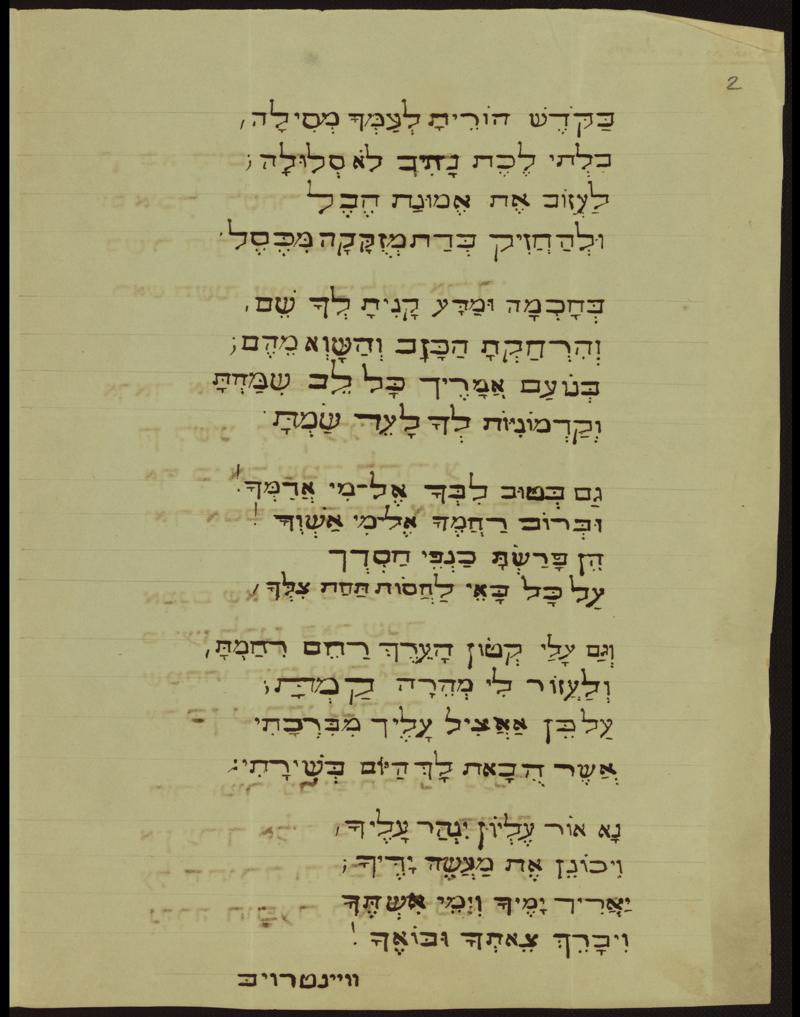 2
בַּקֹּדֶשׁ הוֹרֵיתָ לְעַמְּךָ מְסִילָה,
בִּלְתִּי לֶכֶת נָתִיב לֹא סְלוּלָה;
לַעֲזוֹב אֶת אֱמוּנַת הֶבֶל
וּלְהַחֲזִיק בְּדַת מְזֻקָּקָה מִכֶּסֶל.
בְּחָכְמָה וּמַדָּע קָנִיתָ לְךָ שֵׁם,
וְהִרְחַקְתָּ הַכָּזָב וְהַשָּׁוְא מֵהֶם;
בְּנוֹעַם אֲמָרֶיךָ כָּל לֵב שִׂמַּחְתָּ
וְקַדְמוֹנִיּוֹת לְךָ לָעֵד שַׂמְתָּ.
גַּם בְּטוּב לִבְּךָ אֶל־מִי אֲדַמְּךָ!
וּבְרוֹב רַחֲמֶךָ אֶל־מִי אַשְׁוְךָ!
הֵן פָּרַשְׂתָּ כַּנְפֵי חַסְדְּךָ
עַל כָּל בָּאֵי לַחֲסוֹת תַּחַת צִלֶּךָ,
וְגַם עָלַי קְטוֹן הָעֵרֶךְ רַחֵם רִחַמְתָּ,
וְלַעֲזוֹר לִי מְהֵרָה קַמְתָּ;
עַל כֵּן אַאֲצִיל עָלֶיךָ מִבִּרְכָתִי
אֲשֶׁר הֻבָאת לְךָ הַיּוֹם בְּשִׁירָתִי:
נָא אוֹר עֶלְיוֹן יִנְהַר עָלֶיךָ,
וִיכוֹנֵן אֶת מַעֲשֵׂה יָדֶיךָ;
יַאֲרִיךְ יָמֶיךָ וִימֵי אִשְׁתֶּךָ
וִיבָרֵךְ צֵאתְךָ וּבוֹאֶךָ!
וויינטרויב